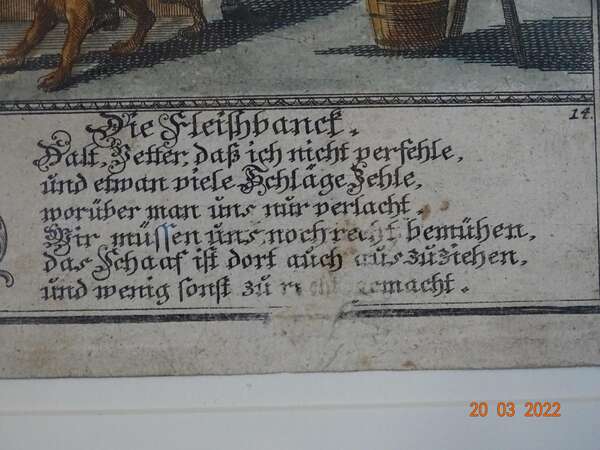 14.
Die Fleishbanck.
Halt, Vetter, daß ich nicht verfehle,
und etwan viele Schläge Zehle,
worüber man uns nur verlacht.
Wir müssen uns noch recht bemühen,
das Schaaf ist dort auch auszuziehen,
und wenig sonst zu recht gemacht.
20 03 2022